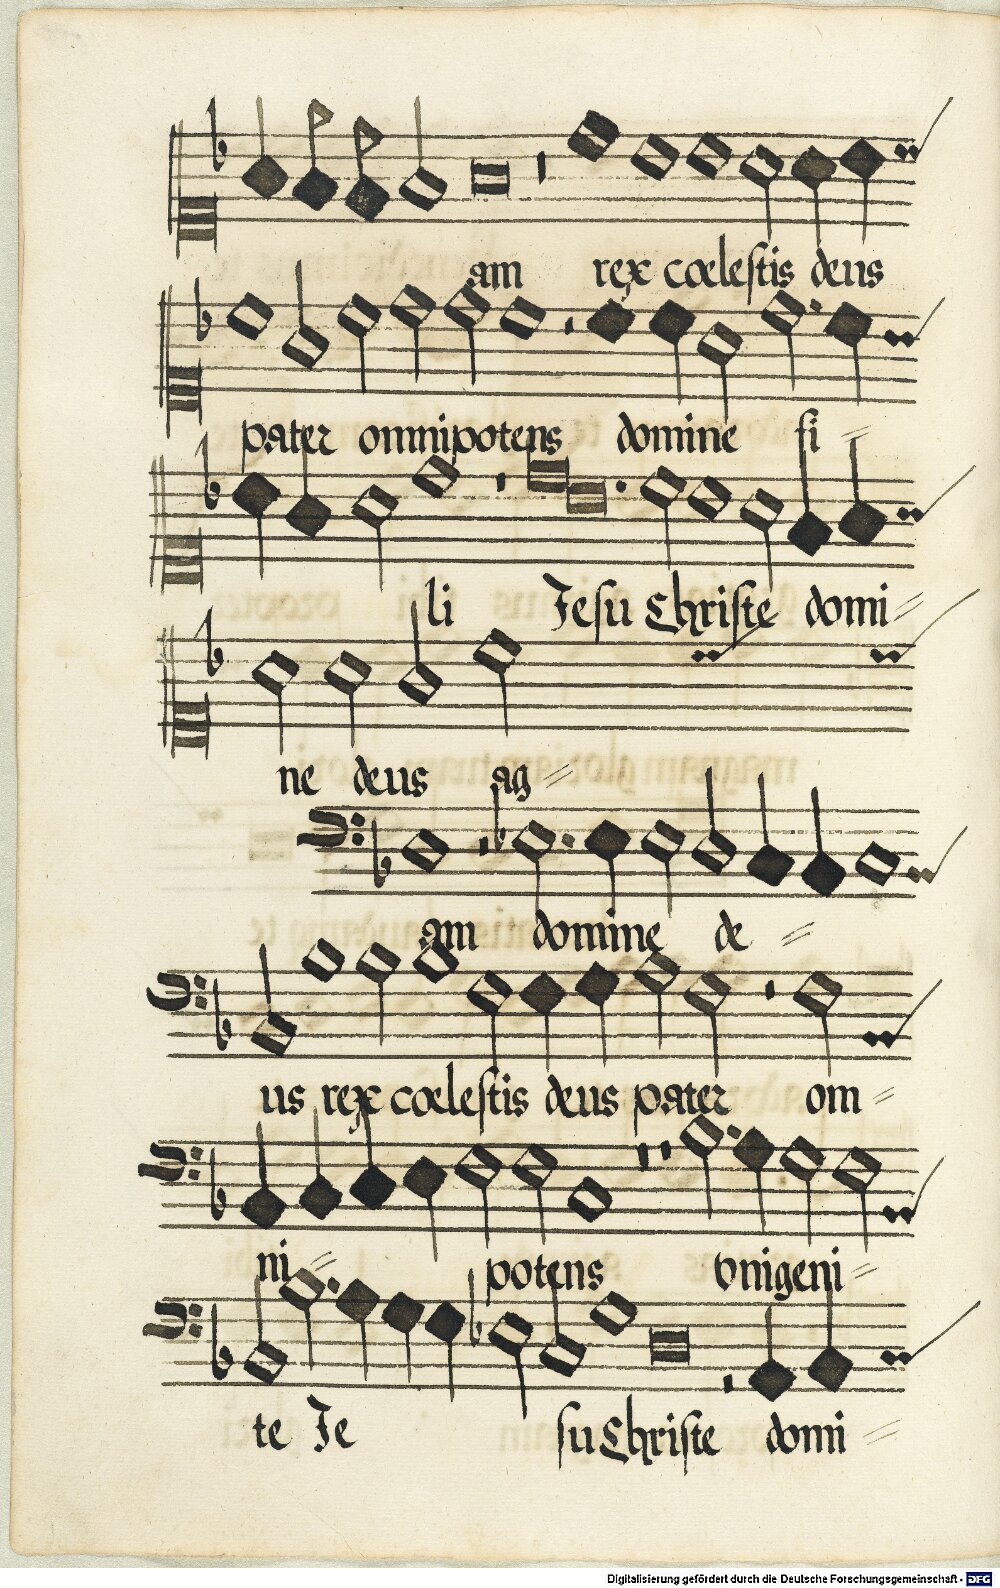 am rex cœlestis deus
pater omnipotens domine fi =
li Jesu Christe domi =
ne deus ag =
am domine de =
us rex cœlestis deus pater om =
ni = potens vnigeni =
te Je su Christe domi =
Digitalisierung gefördert durch die Deutsche Forschungsgemeinschaft - DFG